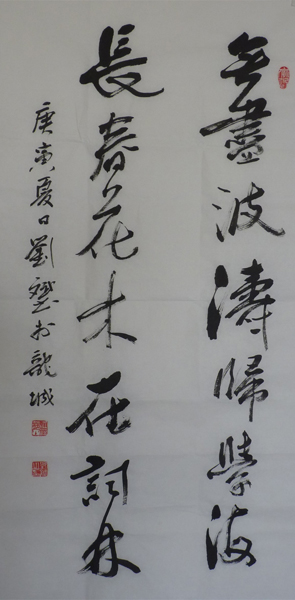 無盡波濤歸學海
長春花木在詞林
庚寅夏日劉 書於龍城